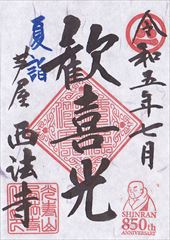 令和五年七月
歓喜光
夏詣
芦屋
西法寺
SHINRAN
850th
ANNIVERSARY